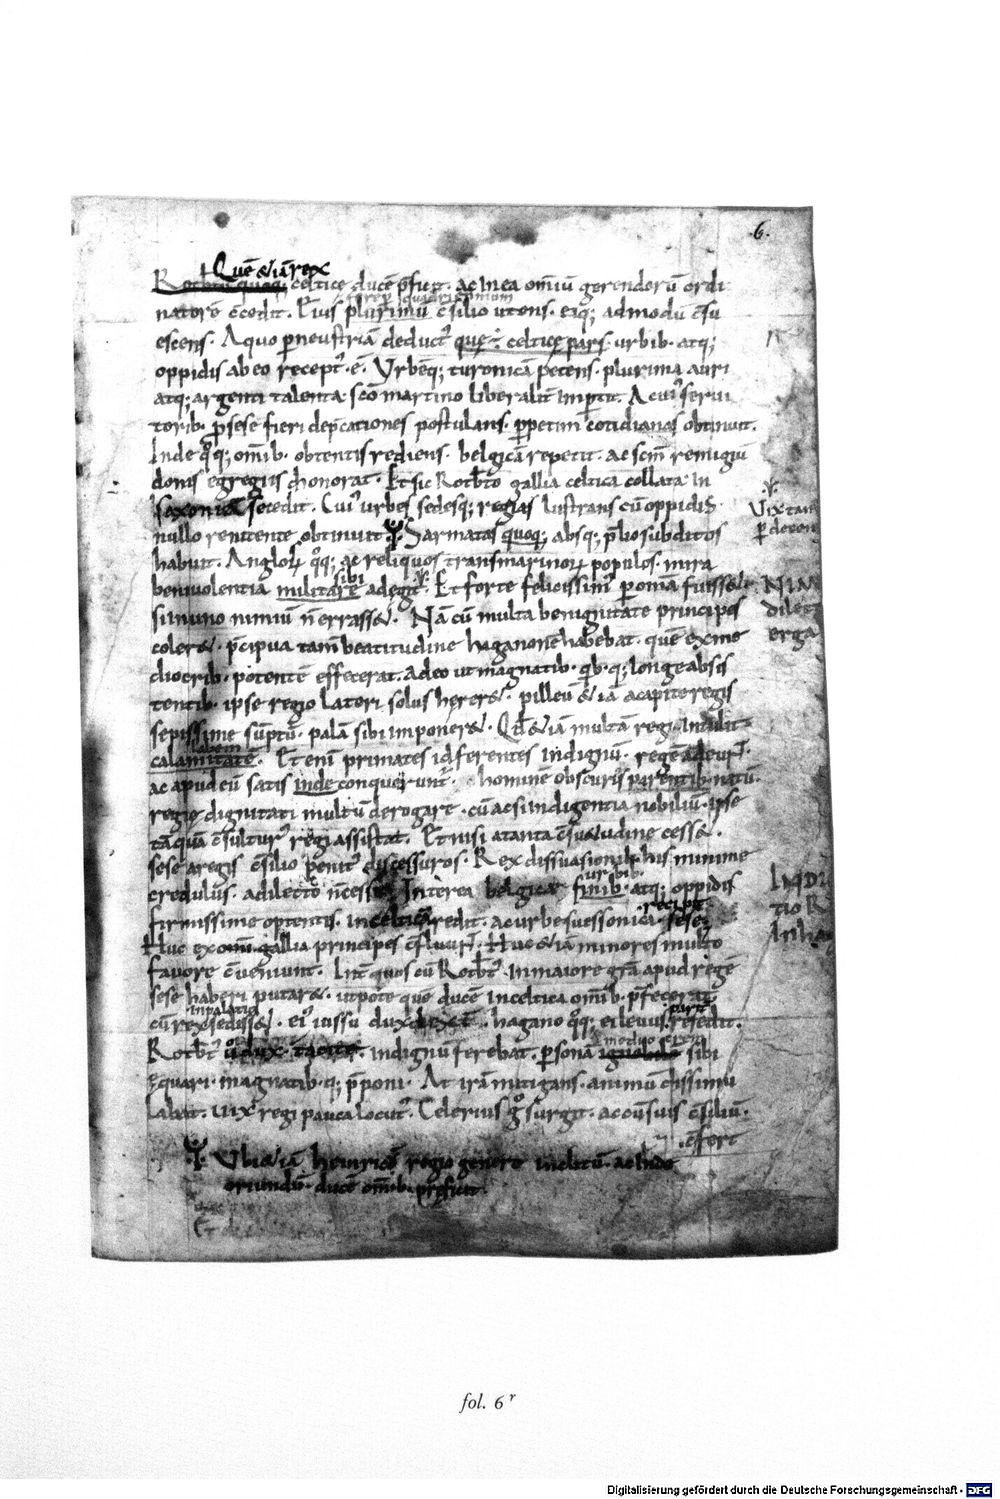 ·6·
Quē & iā rex
Rotbtū quoq; celticę ducē p̄fuit. ac in ea om̄iū gerendorū ordi
natorē c̄cedit. Eius plurimū c̄silio utens. eiq; admodū c̄su
escens. A quo p neustriā deduct'. quę ÷ celticę pars. urbib· atq;
oppidis ab eo recept' ē. Vrbēq; turonicā petens. plurima auri
atq; argenti talenta sc̄o martino liberalit̄ imptit. A cui' serui
torib· p sese fieri dep̄cationes postulans. ppetim cotidianas obtinuit.
Inde qq; om̄ib· obtentis rediens. belgicā repetit. ac sc̄m remigiū
donis egregiis honorat. Et sic Rotb̄to gallia celtica collata in
saxoniā secedit. Cui' urbes sedesq; regias lustrans cū oppidis
nullo renitente obtinuit. Sarmatas quoq; absq; p̄lio subditos
habuit. Anglorū qq; ac reliquos transmarinorū populos mira
sibi
beniuolentia militare adegit. Et forte felicissim' p om̄ia fuiss&.
si in uno nimiū n̄ errass&. Nā cū multa benignitate principes
coler&. p̄cipua tam̄ beatitudine haganonē habebat. quē ex me
diocrib· potentē effecerat. Adeo ut magnatib· qb·q; longe absis
tentib· ipse regio lateri solus herer&. pilleū & iā a capite regis
sepissime sūptū. palā sibi imponer&. Qd & iā multā regi intulit
labem
calamitatē. Et eni primates id ferentes indignū. regē adeunt.
ac apud eū satis inde conquerunt'. hominē obscuris parentib· natū.
regię dignitati multū derogare. cū acsi indigentia nobiliū. ipse
tāquā c̄sultur' regi assistat. Et nisi a tanta c̄su&udine cess&.
sese a regis c̄silio penit' discessuros. Rex dissuasionib· his minime
credulus. a dilecto n̄ cessit. Interea belgicae finib· atq; oppidis
urbib·
firmissime optentis. in celticā redit. ac urbe suessonica. sese
recipit.
Huc ex om̄i gallia principes c̄fluunt. Huc & iā minores multo
fauore c̄ueniunt. Int̄ quos cū Rotb̄t' in maiore gr̄a apud regē
sese haberi putar&. utpote quē ducē in celtica om̄ib· p̄fecerat
in palatio
cū rex sediss&. ei' iussu dux dext̄. hagano qq; ei leuus resedit.
Rotb̄t' u° dux tacite indignū ferebat. psonā sibi
ęquari. magnatib·q; p̄poni. At irā mitigans. animū dissimu
labat. uix regi pauca locut'. Celerius g° surgit. ac cū suis c̄siliū.
c̄fert
Vbi & iā heinricū regio genere inclitū. ac inde
oriundū. ducē om̄ib· pręficit.
Vix tam
p decen
dilect
erga
tio R
in ha
fol. 6 r
Digitalisierung gefördert durch die Deutsche Forschungsgemeinschaft - DFG